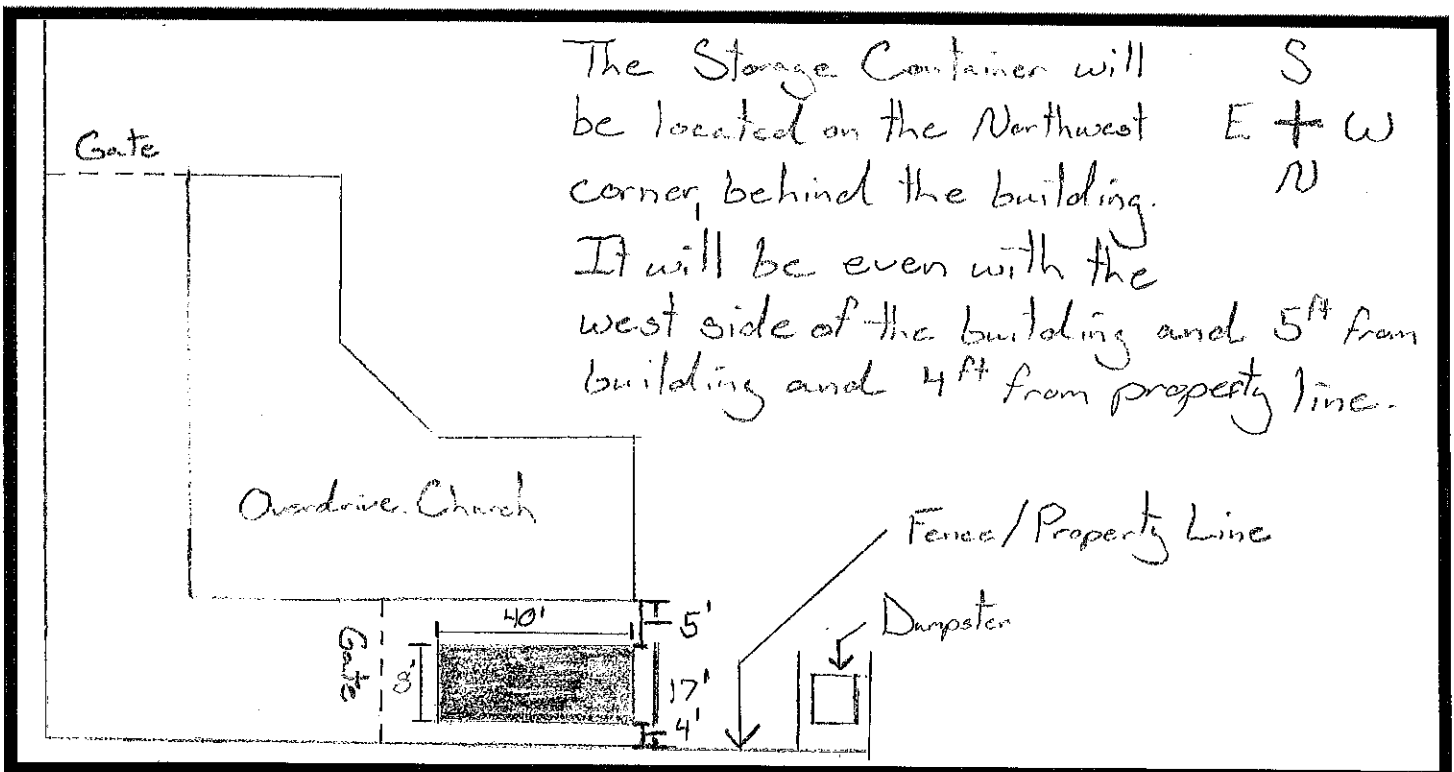 The Storage Container will
be located on the Northwest
corner, behind the building.
It will be even with the
west side of the building and 5ft from
building and 4ft from property line.
S
E + W
N
Gate
Overdrive Church
Fence/Property Line
Dumpster
Gate
40'
8'
5'
17'
4'